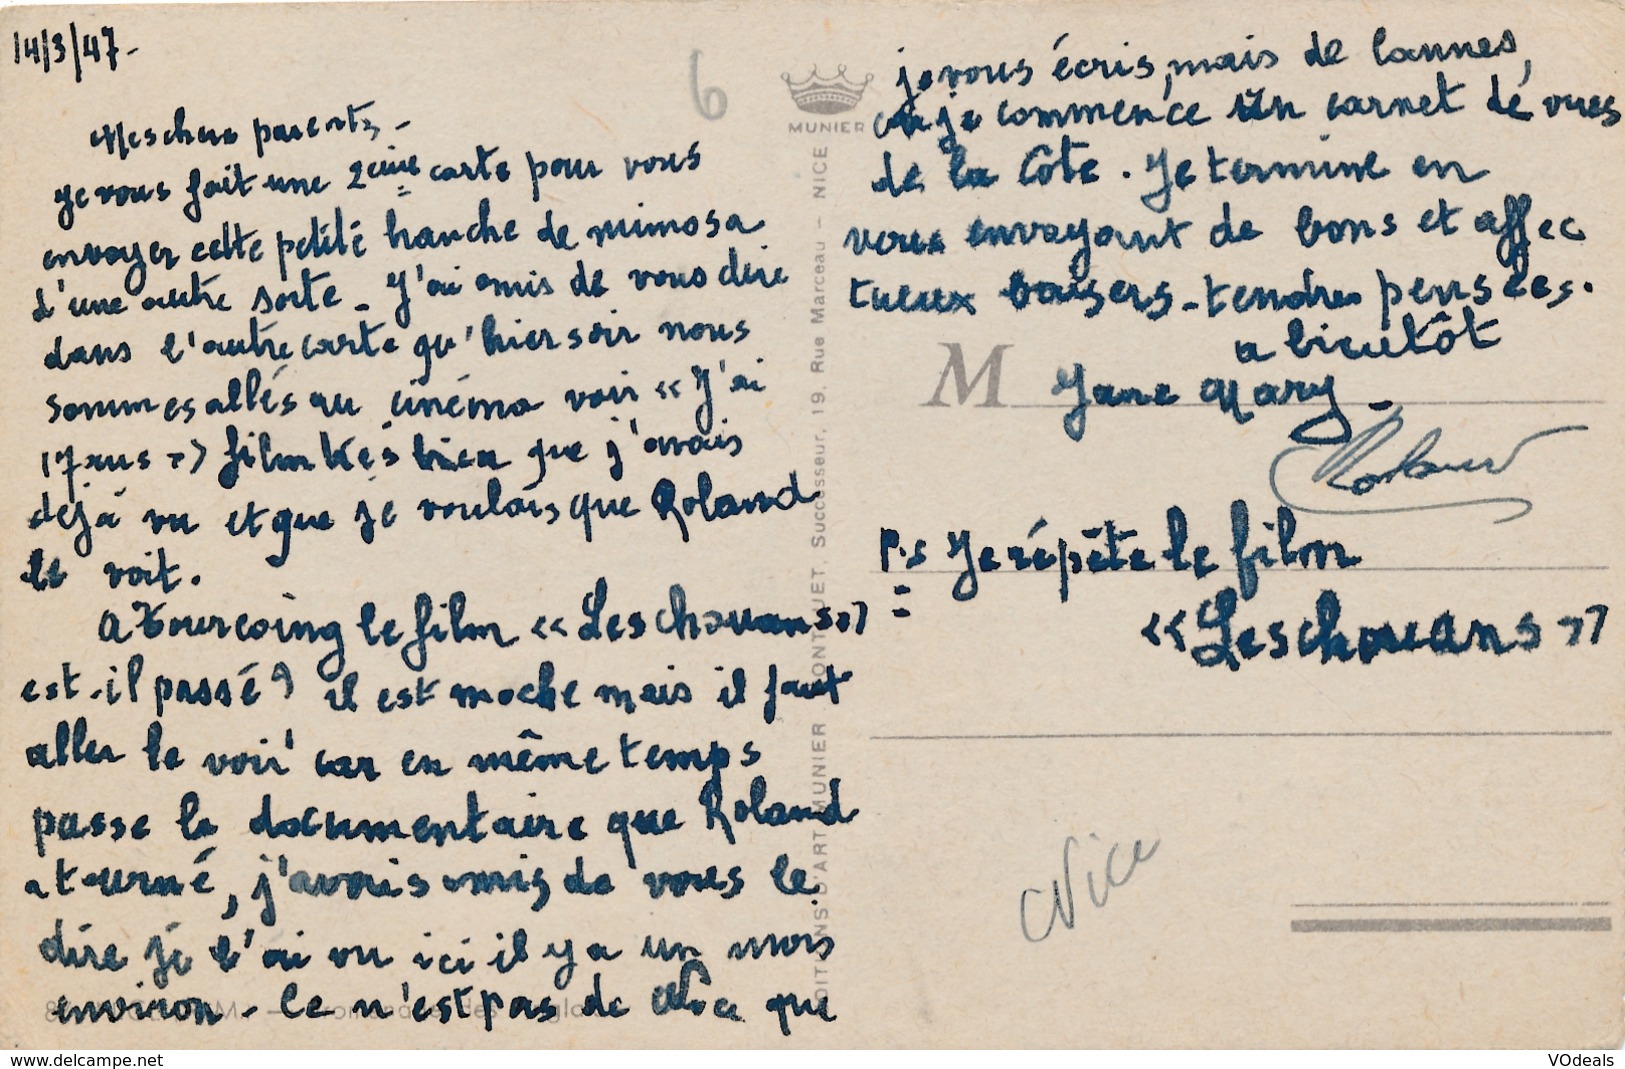 14/3/47-
Mes chers parents,-
Je vous fait une 2eme carte pour vous
envoyer cette petite branche de mimosa
d'une autre sorte - J'ai omis de vous dire
dans l'autre carte qu'hier soir nous
sommes allés au cinéma voir « J'ai
17 ans » film très bien que j'avais
déjà vu et que je voulais que Roland
le voit.
A Tourcoing le film « Les chouans »
est-il passé? il est moche mais il faut
aller le voir car en même temps
passe le documentaire que Roland
a tourné, j'avais omis de vous le
dire je l'ai vu ici il y a un mois
environ - Ce n'est pas de Nice que
je vous écris, mais de Cannes,
car je commence un carnet de vues
de la Côte. Je termine en
vous envoyant de bons et affec
tueux baisers - tendres pensées.
a bientôt
Jane Mary -
Roland
P.S Je répète le film
« Les chouans »
6
MUNIER
EDITIONS D'ART MUNIER
Successeur, 19, Rue Marceau - NICE
M
Nice
www.delcampe.net
VOdeals